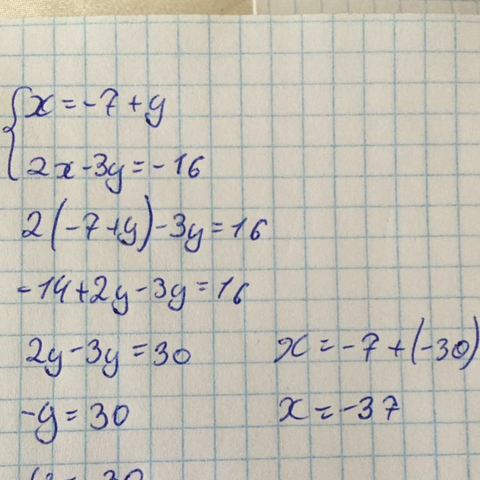 x = -7 + y
2x - 3y = -16
2(-7 + y) - 3y = 16
-14 + 2y - 3y = 16
2y - 3y = 30
-y = 30
x = -7 + (-30)
x = -37